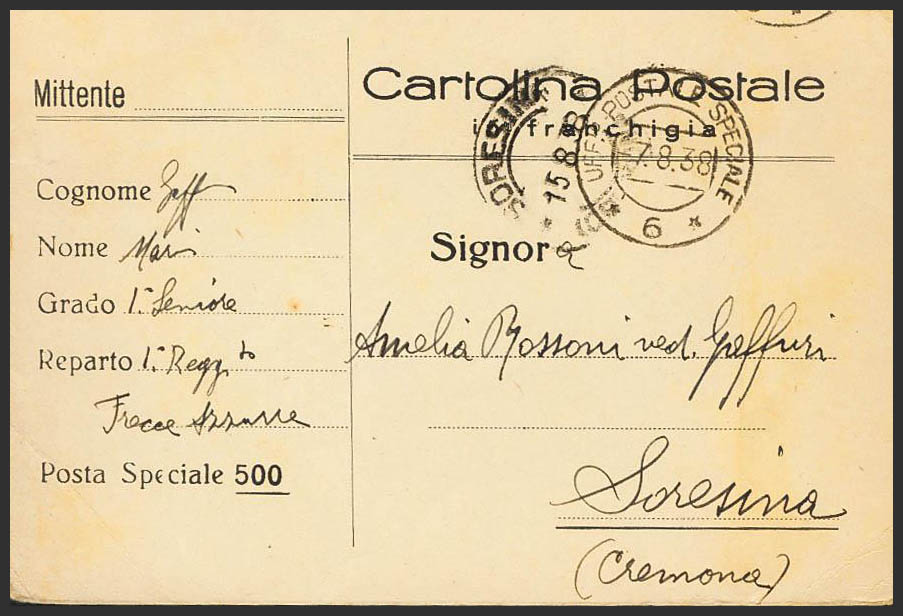 Cartolina Postale
in franchigia
SORESINA
15.8.38
UFF. POSTALE SPECIALE
17.8.38
6
Mittente
Cognome Geff
Nome Mari
Grado 1° Seniore
Reparto 1° Regg to
Frecce Azzurre
Posta Speciale 500
Signora
Amelia Rossoni ved. Geffuri
Soresina
(Cremona)